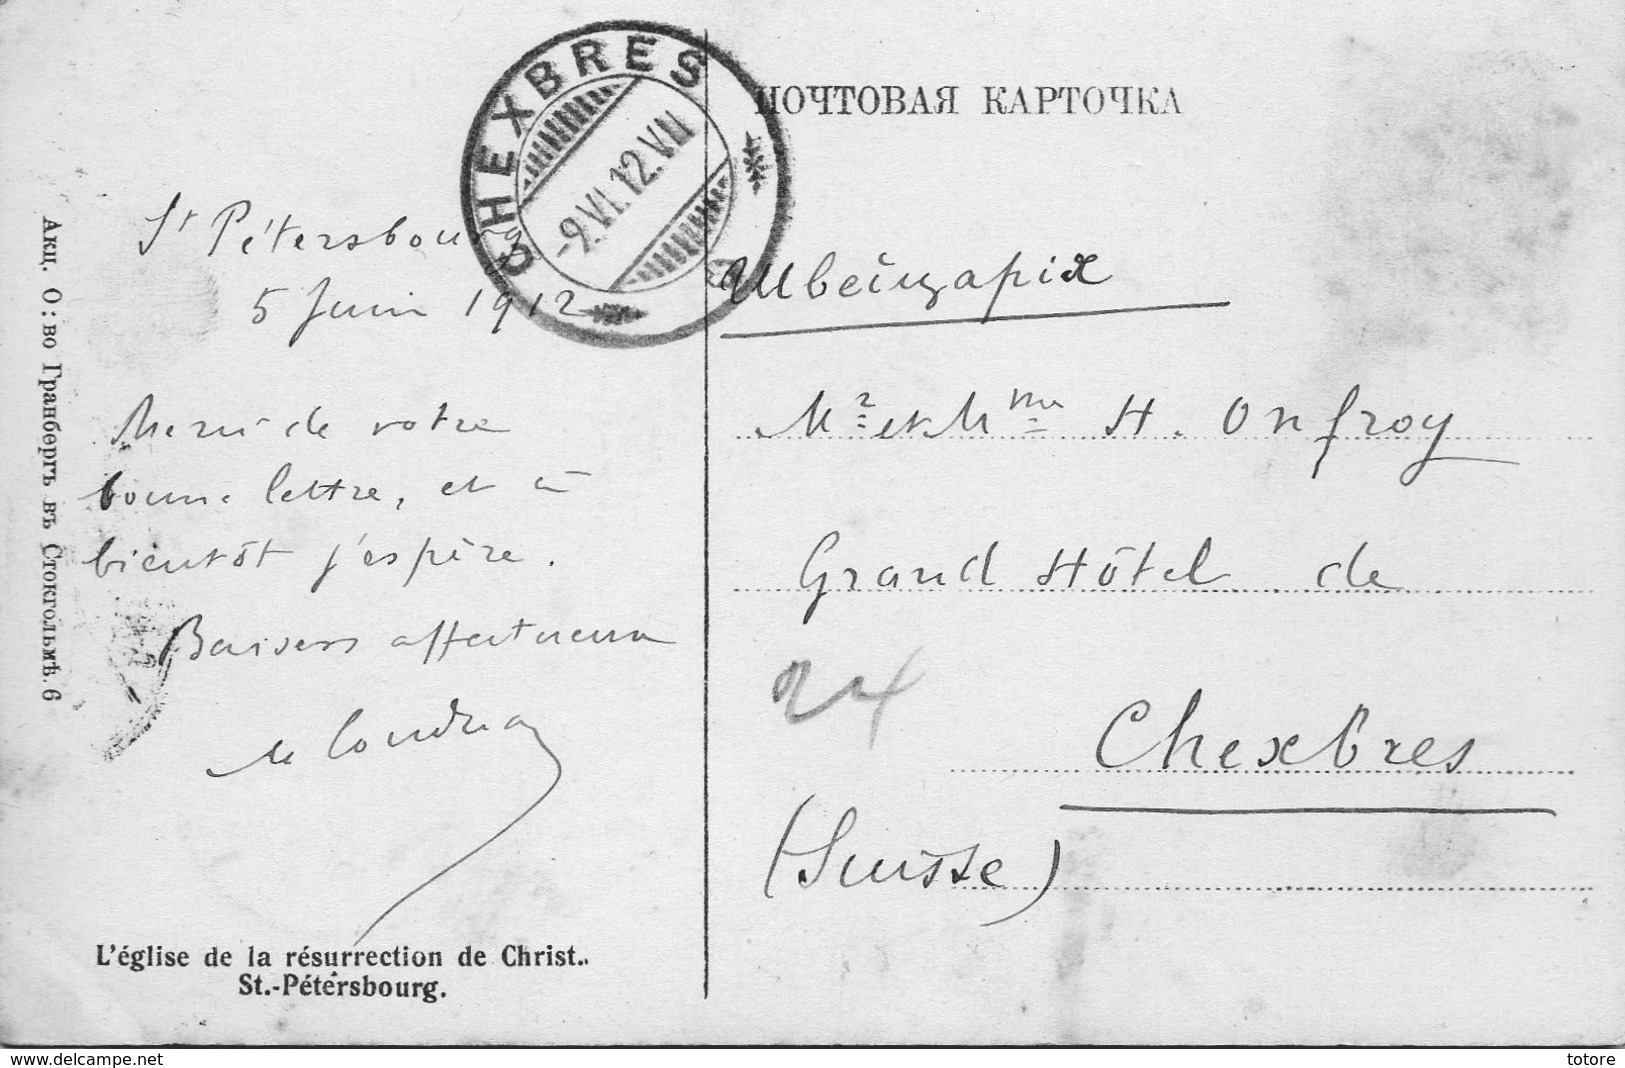 CHEXBRES
-9.VI.12.VII
ПОЧТОВАЯ КАРТОЧКА
St Pétersbourg
5 Juin 1912
Merci de votre
bonne lettre, et à
bientôt j'espère.
Baisers affectueux
Швейцарія
Mr et Mme H. Onfroy
Grand Hôtel de
Chexbres
(Suisse)
24
L'église de la résurrection de Christ.
St.-Pétersbourg.
Акц. О:во Гранбергъ въ Стокгольмѣ. 6
delcampe.net
totore